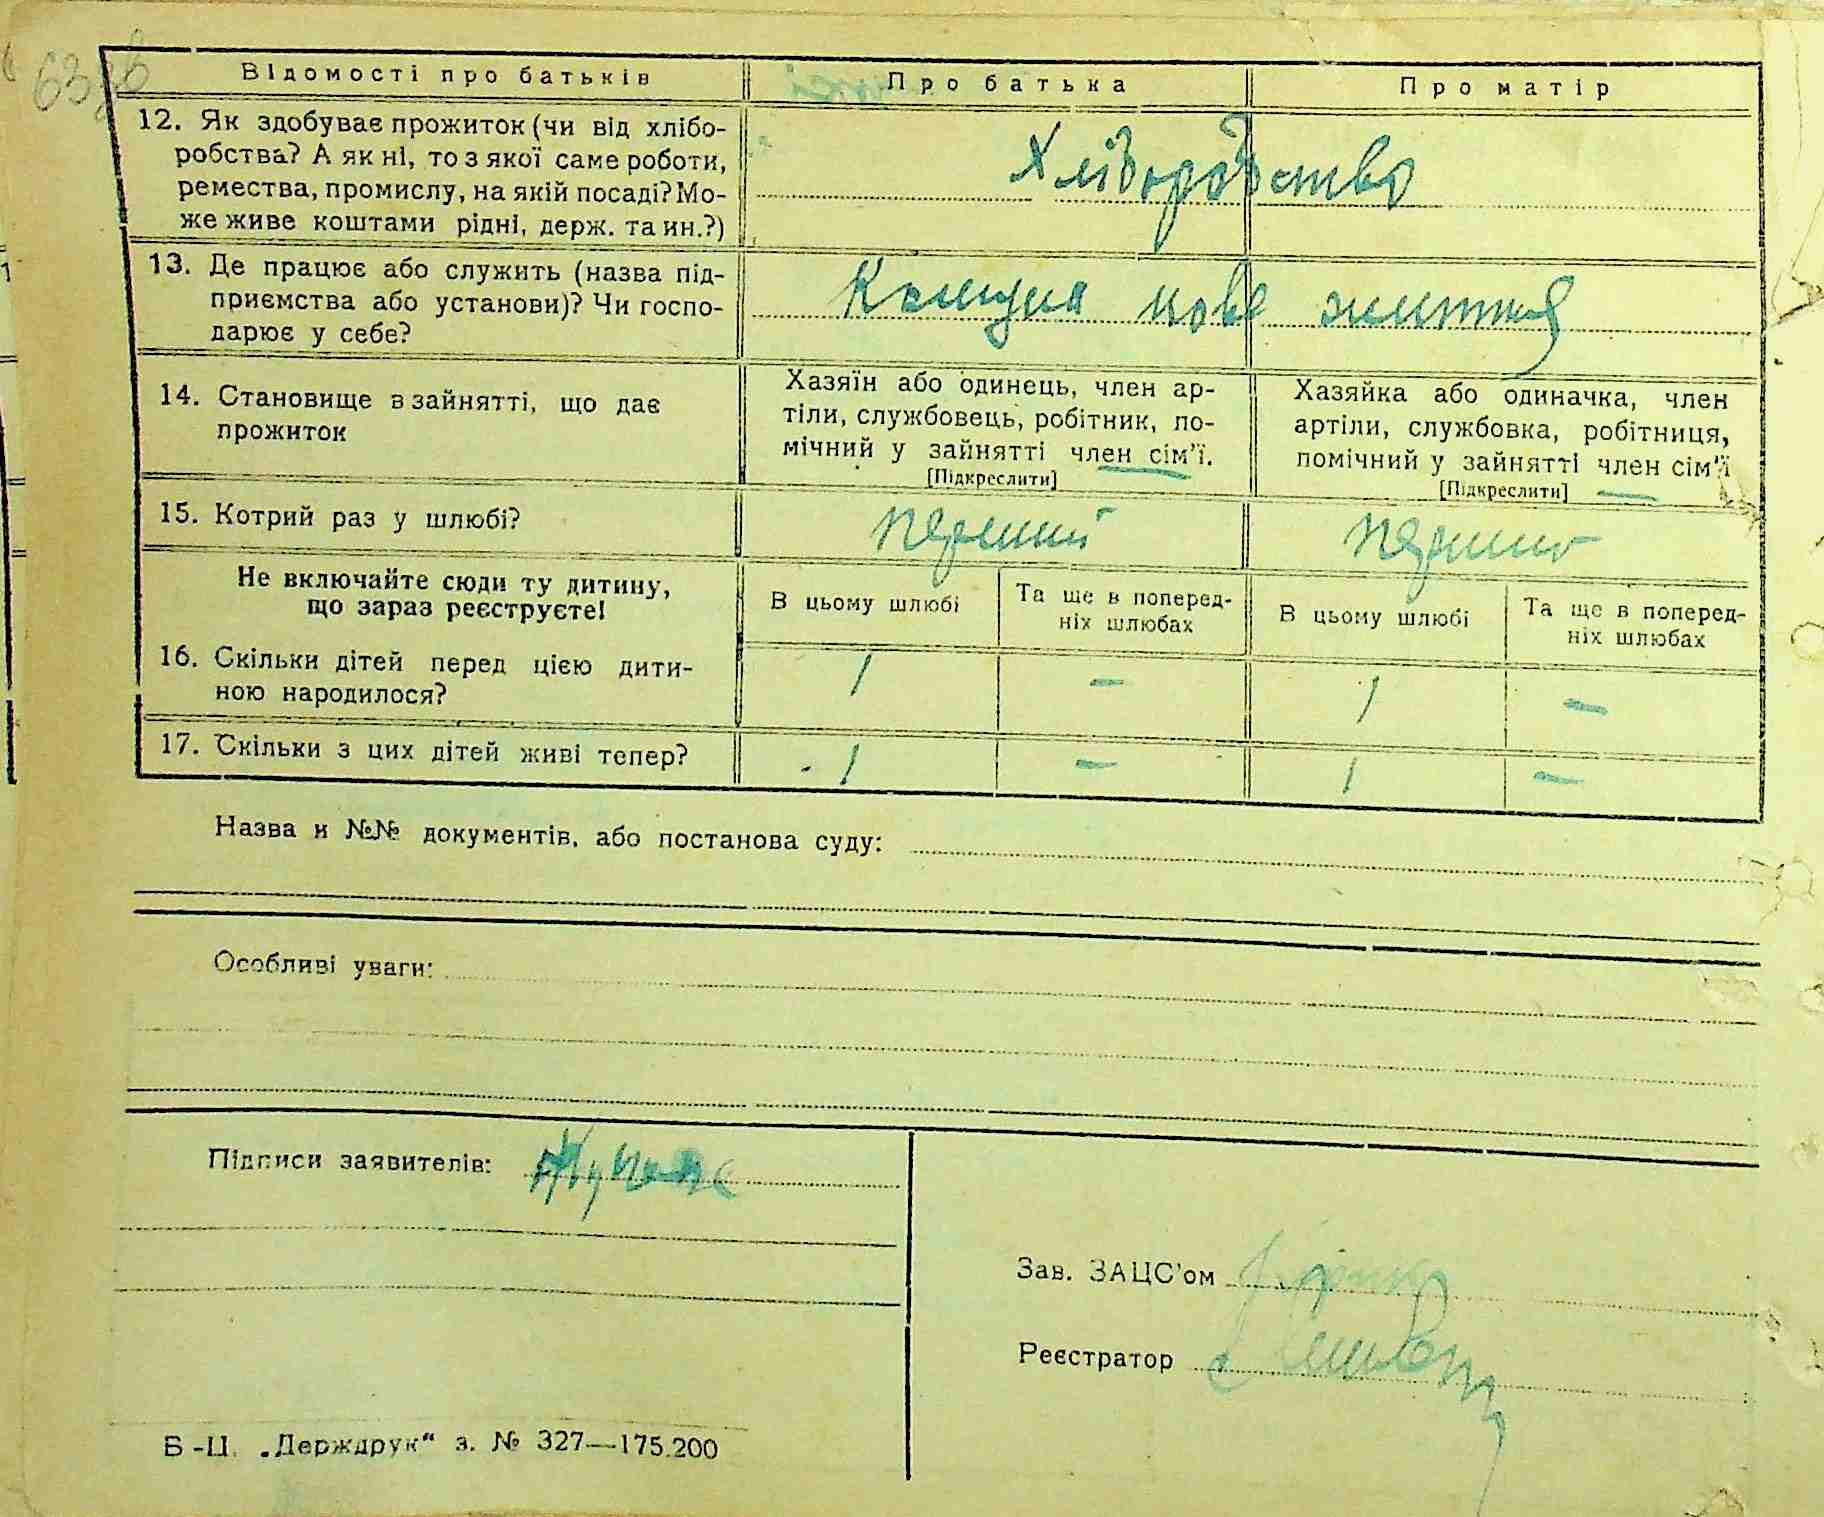 63зв
Відомості про батьків Про батька Про матір
12. Як здобуває прожиток (чи від хлібо-
робства? А як ні, то з якої саме роботи,
ремества, промислу, на якій посаді? Мо-
же живе коштами рідні, держ. та ин.?)
Хліборобство
13. Де працює або служить (назва під-
приємства або установи)? Чи госпо-
дарює у себе?
Комуна нове життя
14. Становище в зайнятті, що дає
прожиток
Хазяїн або одинець, член ар-
тіли, службовець, робітник, по-
мічний у зайнятті член сім'ї.
[Підкреслити]
Хазяйка або одиначка, член
артіли, службовка, робітниця,
помічний у зайнятті член сім'ї
[Підкреслити]
15. Котрий раз у шлюбі? перший перший
Не включайте сюди ту дитину,
що зараз реєструєте!
В цьому шлюбі
Та ще в поперед-
ніх шлюбах
В цьому шлюбі
Та ще в поперед-
ніх шлюбах
16. Скільки дітей перед цією дити-
ною народилося?
1 – 1 –
17. Скільки з цих дітей живі тепер? 1 – 1 –
Назва и №№ документів, або постанова суду:
Особливі уваги:
Підписи заявителів:
Зав. ЗАЦС'ом
Реєстратор
Б-Ц. „Держдрук“ з. № 327—175.200